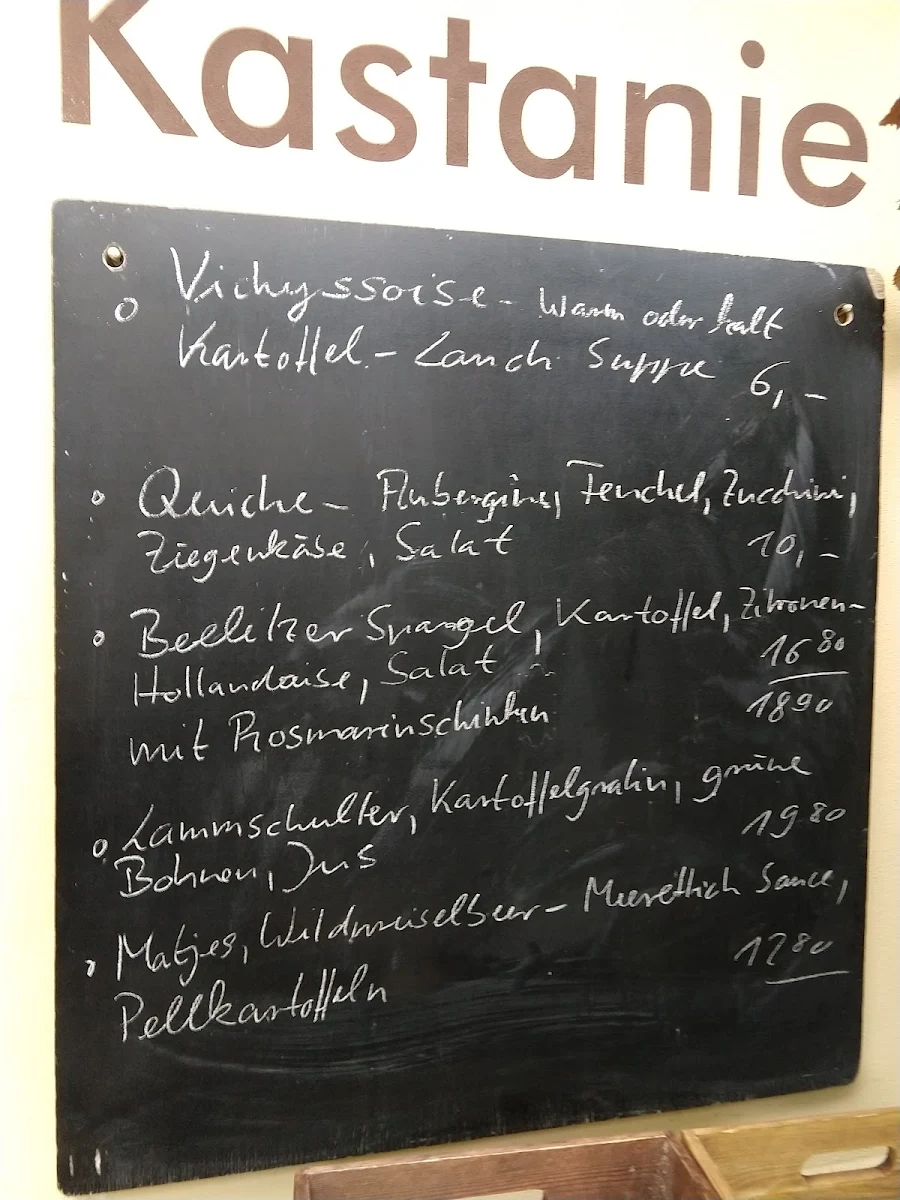 Kastanie
Vichyssoise - warm oder kalt
Kartoffel - Lauch Suppe 6,-
Quiche - Aubergine, Fenchel, Zucchini,
Ziegenkäse, Salat 10,-
Beelitzer Spargel, Kartoffel, Zitronen-
Hollandaise, Salat 16 80
mit Rosmarinschinken 18 90
Lammschulter, Kartoffelgratin, grüne
Bohnen, Jus 19 80
Matjes, Wildpreiselbeer - Meerettich Sauce,
Pellkartoffeln 17 80